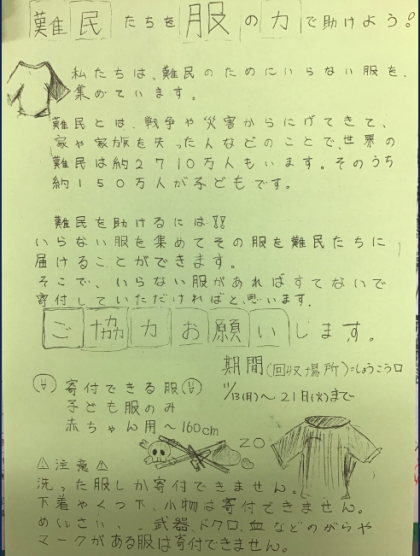 難民たちを服の力で助けよう!
私たちは、難民のためにいらない服を、
集めています。
難民とは、戦争や災害からにげてきて、
家や家族を失った人などのことで、世界の
難民は約2710万人もいます。そのうち
約150万人が子どもです。
難民を助けるには!!
いらない服を集めてその服を難民たちに
届けることができます。
そこで、いらない服があればすてないで
寄付していただければと、思います。
ご協力お願いします。
期間(回収場所)=しょうこう口
11/13(月)〜21日(火)まで
寄付できる服
子ども服のみ
赤ちゃん用〜160cm
⚠注意⚠
洗った服しか寄付できません。
下着やくつ下、小物は寄付できません。
めいさい、武器、ドクロ、血などのがらや
マークがある服は寄付できません。